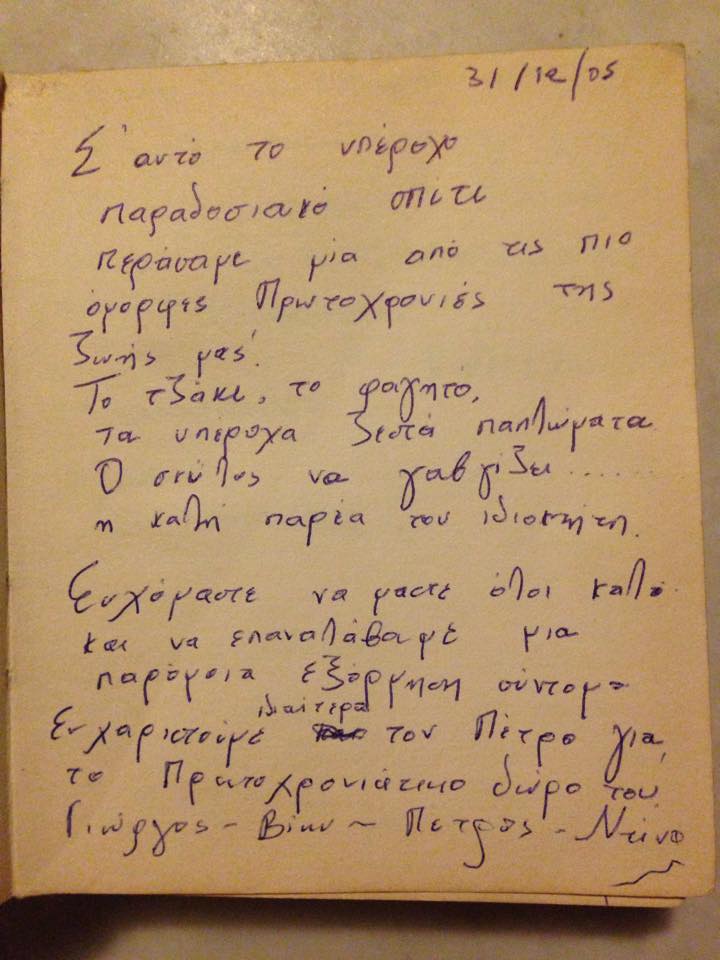 31/12/05
Σ' αυτό το υπέροχο
παραδοσιακό σπίτι
περάσαμε μία από τις πιο
όμορφες Πρωτοχρονιές της
ζωής μας!
Το τζάκι, το φαγητό,
τα υπέροχα ζεστά παπλώματα
Ο σκύλος να γαβγίζει......
η καλή παρέα του ιδιοκτήτη.
Ευχόμαστε να μαστε όλοι καλά
και να επαναλάβαμε μια
παρόμοια εξόρμηση σύντομα
ιδιαίτερα
Ευχαριστούμε τον Πέτρο για
το Πρωτοχρονιάτικο δώρο του
Γιώργος - Βίκυ - Πέτρος - Ντίνα